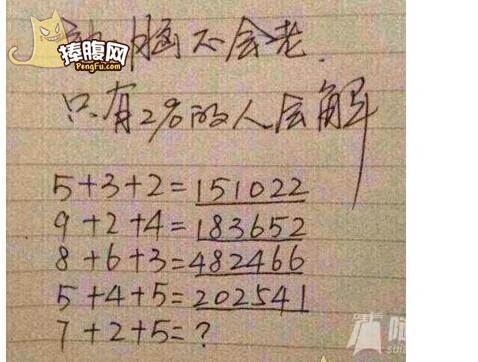 捧腹网
PengFu.com
动脑不会老.
只有2%的人会解
5+3+2=151022
9+2+4=183652
8+6+3=482466
5+4+5=202541
7+2+5=?